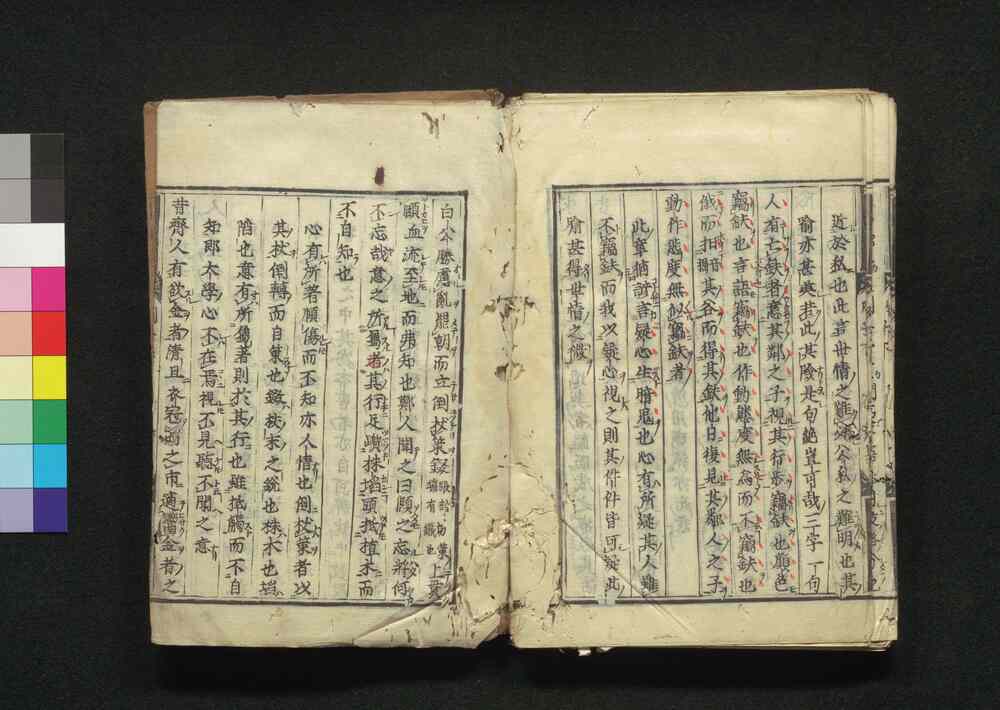 近於私也此言世情之難濟公私之難明也其
喻亦甚美若此其險是句絶豈可哉三字一句
人有亡鈇者意其鄰之子視其行歩竊鈇也顔色
竊鈇也言語竊鈇也作動態度無為而不竊鈇也
俄而抇其谷而得其鈇他日復見其鄰人之子
動作態度無似竊鈇者
此章猶諺言疑心生暗鬼也心有所疑其人雖
不竊鈇而我以疑心視之則其件件皆可疑此
喻甚得世情之微
白公勝慮亂罷朝而立倒杖策錣上貫
頤血流至地而弗知也鄭人聞之曰頤之忘將何
不忘哉意之所屬者其行足躓株埳頭抵植木而
不自知也
心有所著頤傷而不知亦人情也倒杖策者以
其杖倒轉而自策也錣杖末之鋭也株木也埳
陷也意有所屬著則於其行也雖抵觸而不自
知即大學心不在焉視不見聽不聞之意
昔齊人有欲金者清旦衣冠而之市適鬻金者之